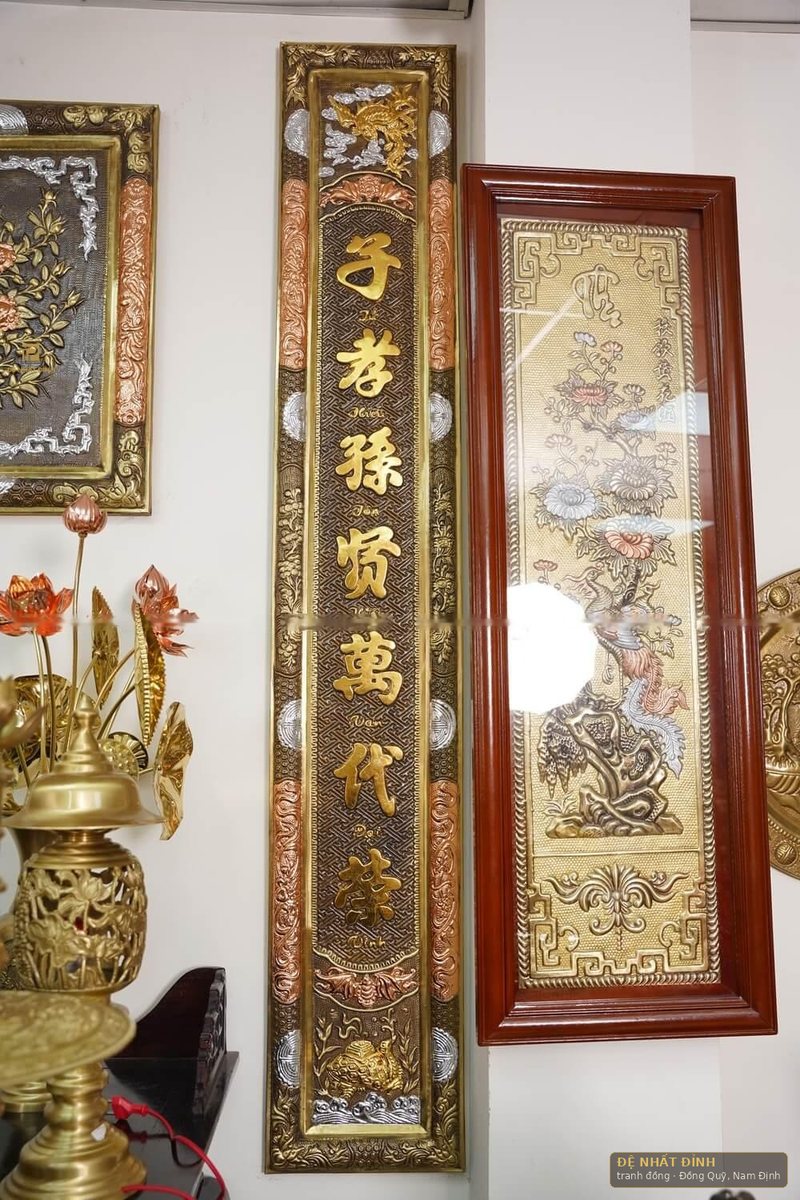 子
Tử
孝
Hiếu
孫
Tôn
贤
Hiền
萬
Vạn
代
Đại
荣
Vinh
ĐỆ NHẤT ĐỈNH
tranh đồng · Đồng Quỹ, Nam Định